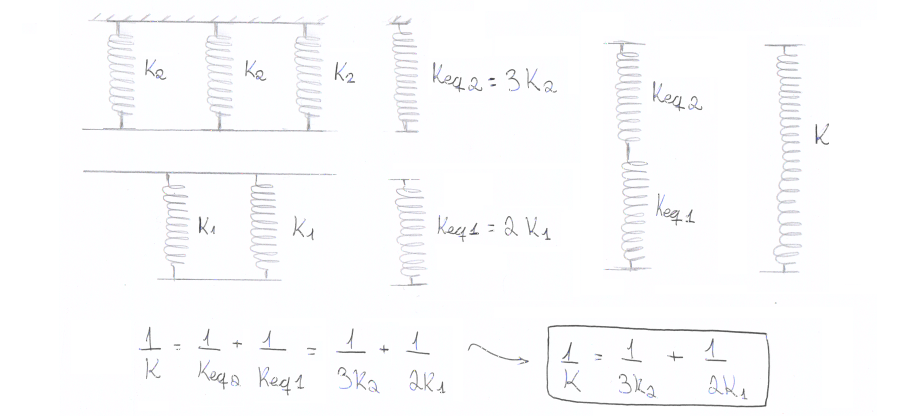 K2 K2 K2 Keq2 = 3K2
Keq2
K
K1 K1 Keq1 = 2K1
Keq1
1/K = 1/Keq2 + 1/Keq1 = 1/3K2 + 1/2K1
1/K = 1/3K2 + 1/2K1